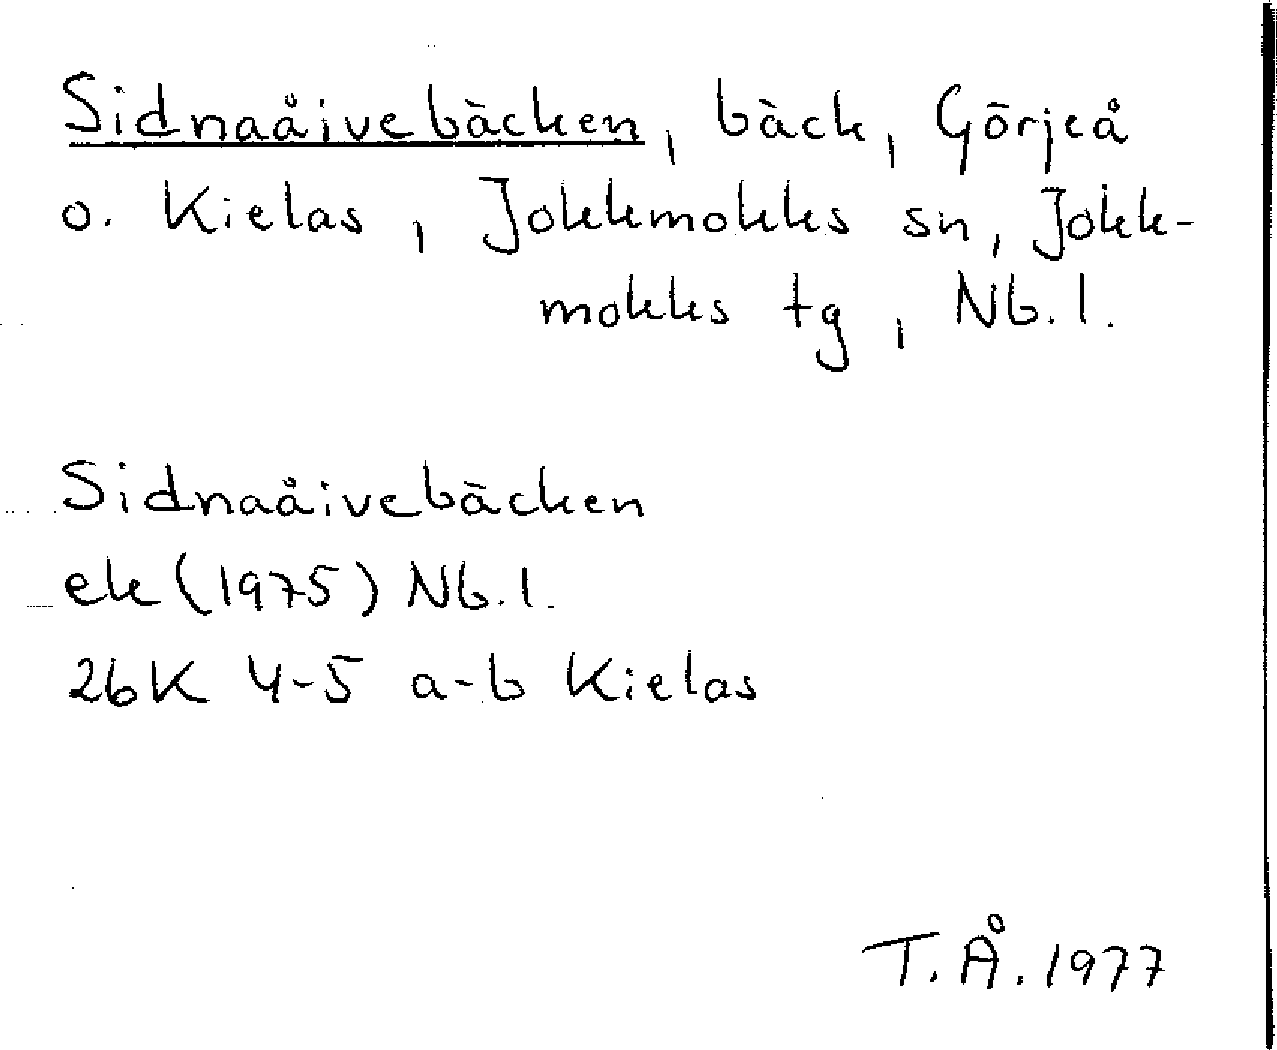 Sidnaåivebäcken, bäck, Görjeå
o. Kielas, Jokkmokks sn, Jokk-
mokks tg, Nb. l.
Sidnaåivebäcken
ek (1975) Nb. l.
26K 4-5 a-b Kielas
T. Å. 1977